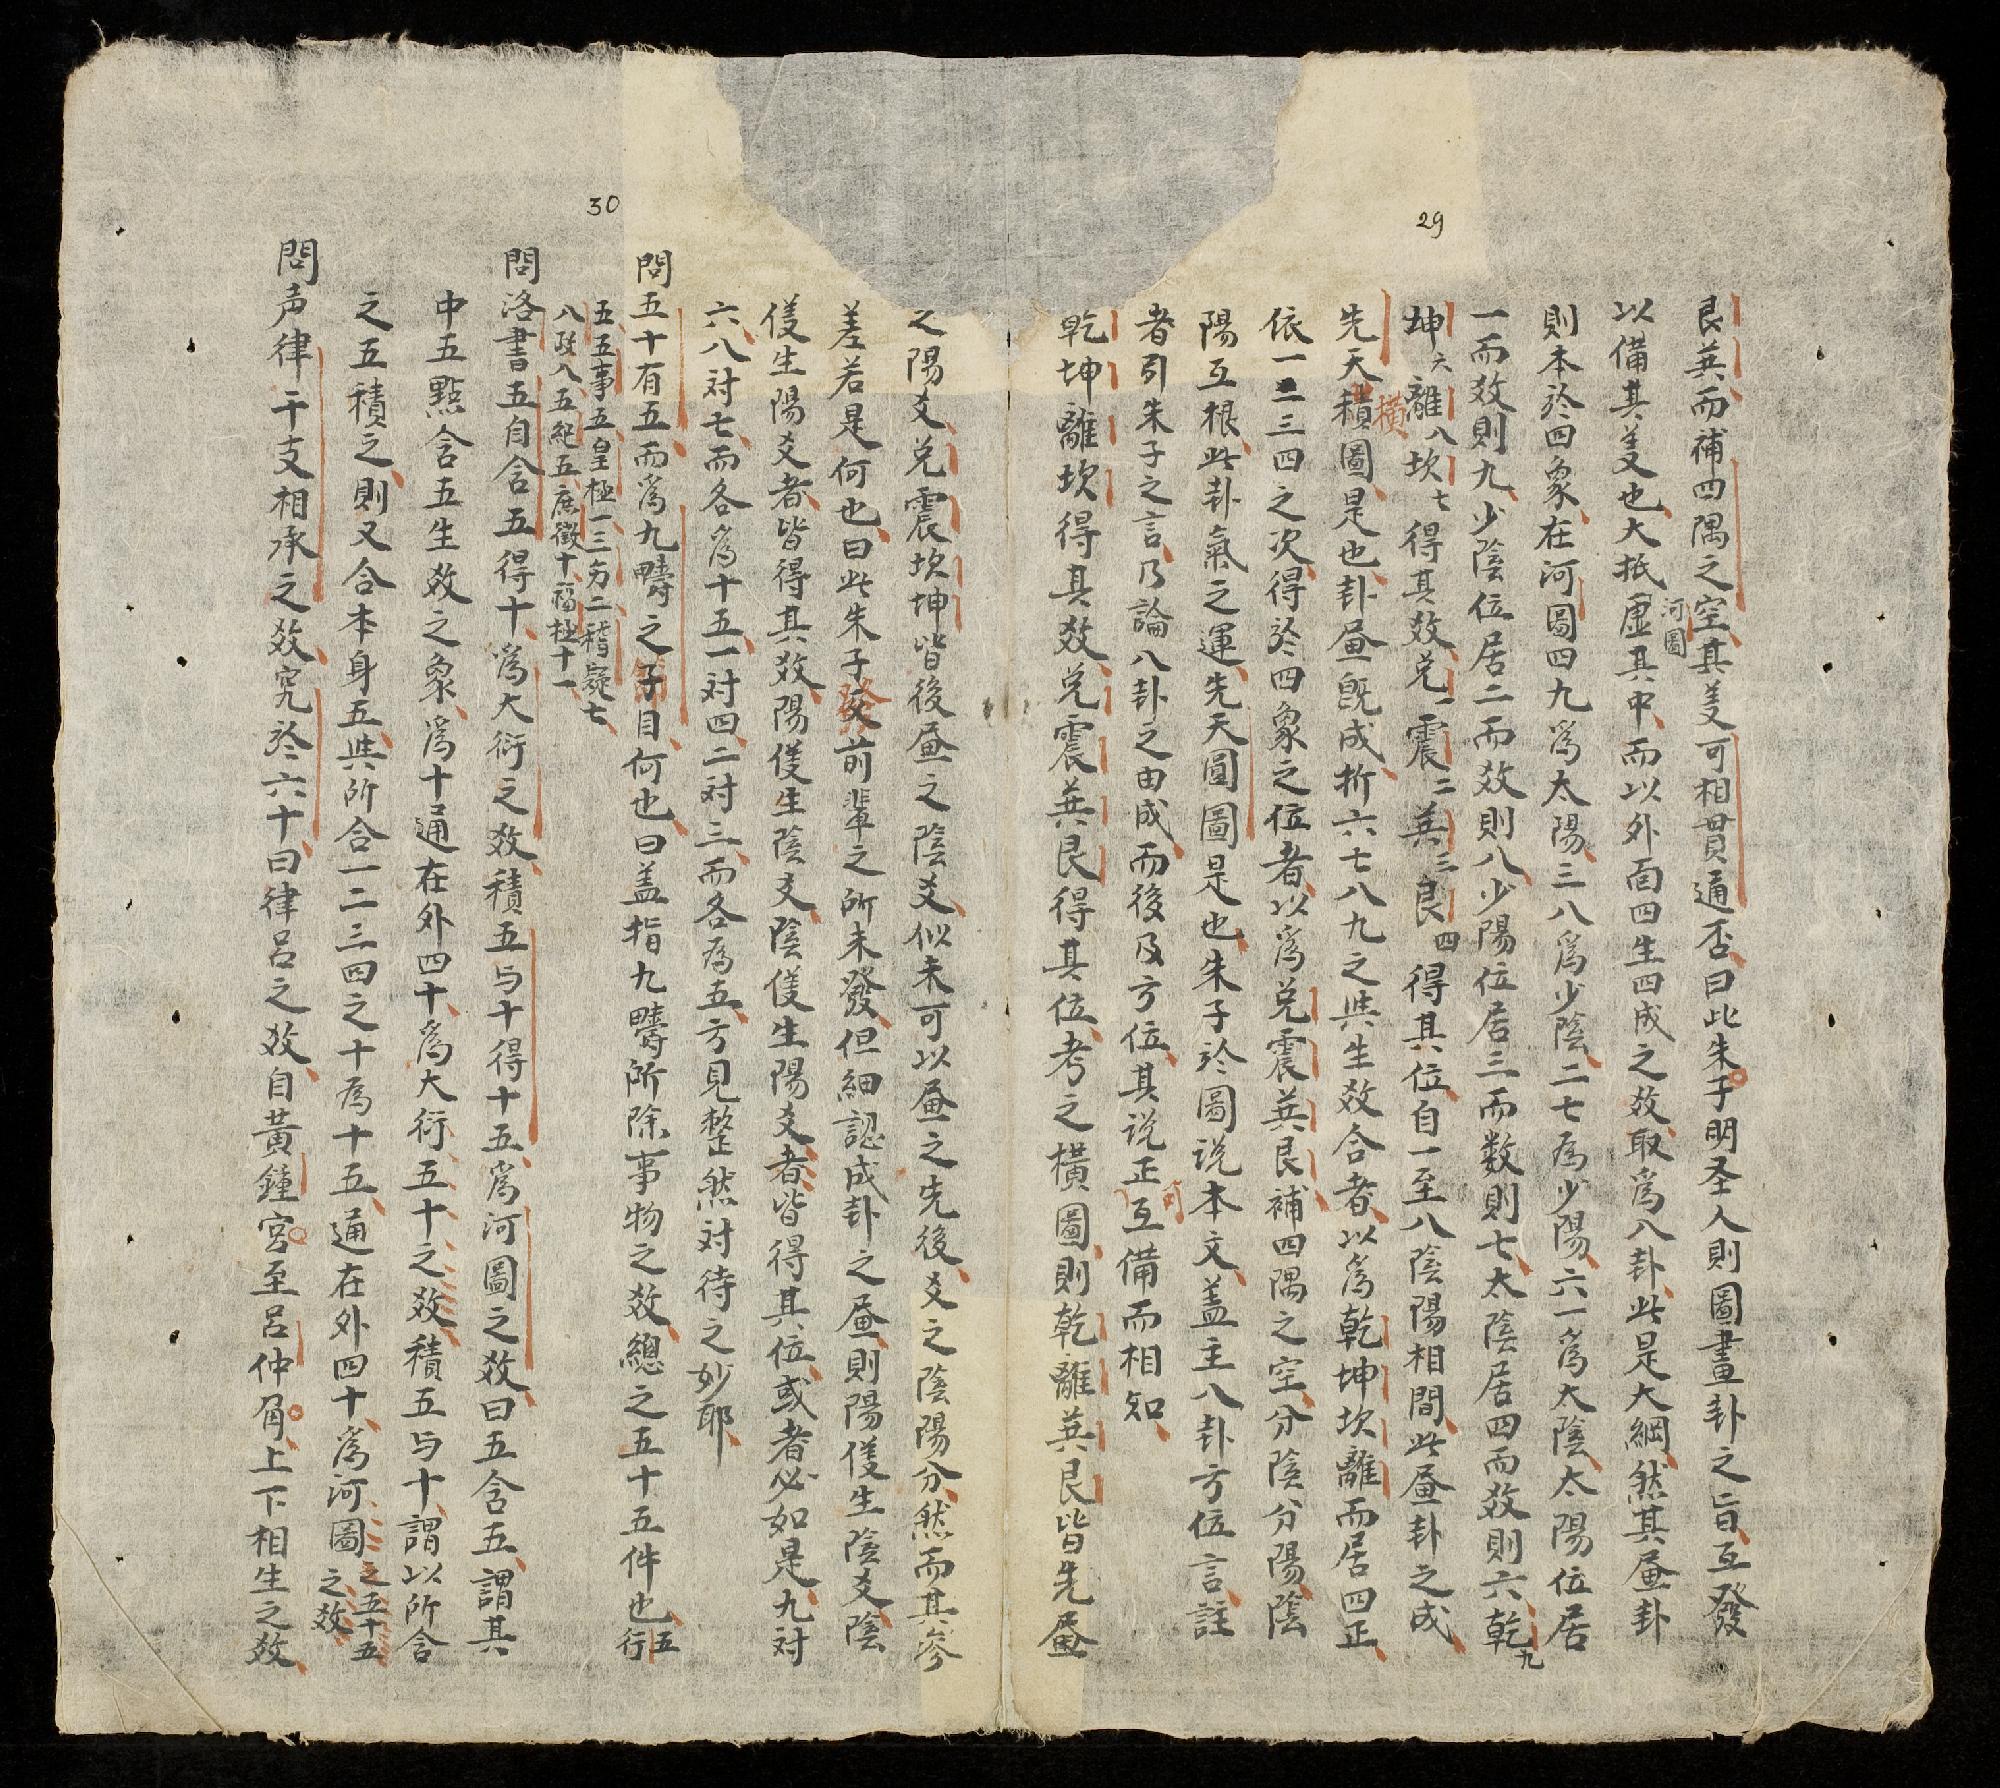 29
艮巽而補四隅之空其義可相貫通否曰此朱子明圣人則圖畫卦之旨互發
以備其義也大抵虛其中而以外面四生四成之数取爲八卦此是大綱然其畫卦
河圖
則本於四象在河圖四九爲太陽三八爲少陰二七為少陽六一爲太陰太陽位居
一而数則九少陰位居二而数則八少陽位居三而数則七太陰居四而数則六乾九
坤六離八坎七得其数兑一震二巽三艮四得其位自一至八陰陽相間此畫卦之成
橫
先天積圖是也卦畫既成折六七八九之與生数合者以爲乾坤坎離而居四正
依一二三四之次得於四象之位者以爲兑震巽艮補四隅之空分陰分陽陰
陽互根此卦氣之運先天圓圖是也朱子於圖说本文盖主八卦方位言註
者引朱子之言乃論八卦之由成而後及方位其说正互備而相知
乾坤離坎得其数兑震巽艮得其位考之橫圖則乾離巽艮皆先畫
之陽爻兑震坎坤皆後畫之陰爻似未可以畫之先後爻之陰陽分然而其岑
差若是何也曰此朱子文前輩之所未發但細認成卦之畫則陽僅生陰爻陰
發
僅生陽爻者皆得其数陽僅生陰爻陰僅生陽爻者皆得其位或者必如是九対
六八対七而各爲十五一対四二対三而各為五方見整然対待之妙耶
問五十有五而爲九疇之子目何也曰盖指九疇所除事物之数總之五十五件也五行
五五事五皇極一三旁二稽疑七
八政八五紀五庶徵十福極十一
30
問洛書五自含五得十爲大衍之数積五与十得十五爲河圖之数曰五含五謂其
中五點含五生数之象爲十通在外四十爲大衍五十之数積五与十謂以所含
之五積之則又合本身五與所合一二三四之十為十五通在外四十爲河圖之五十五之数
問声律干支相承之数究於六十曰律呂之数自黃鐘宮至呂仲角上下相生之数